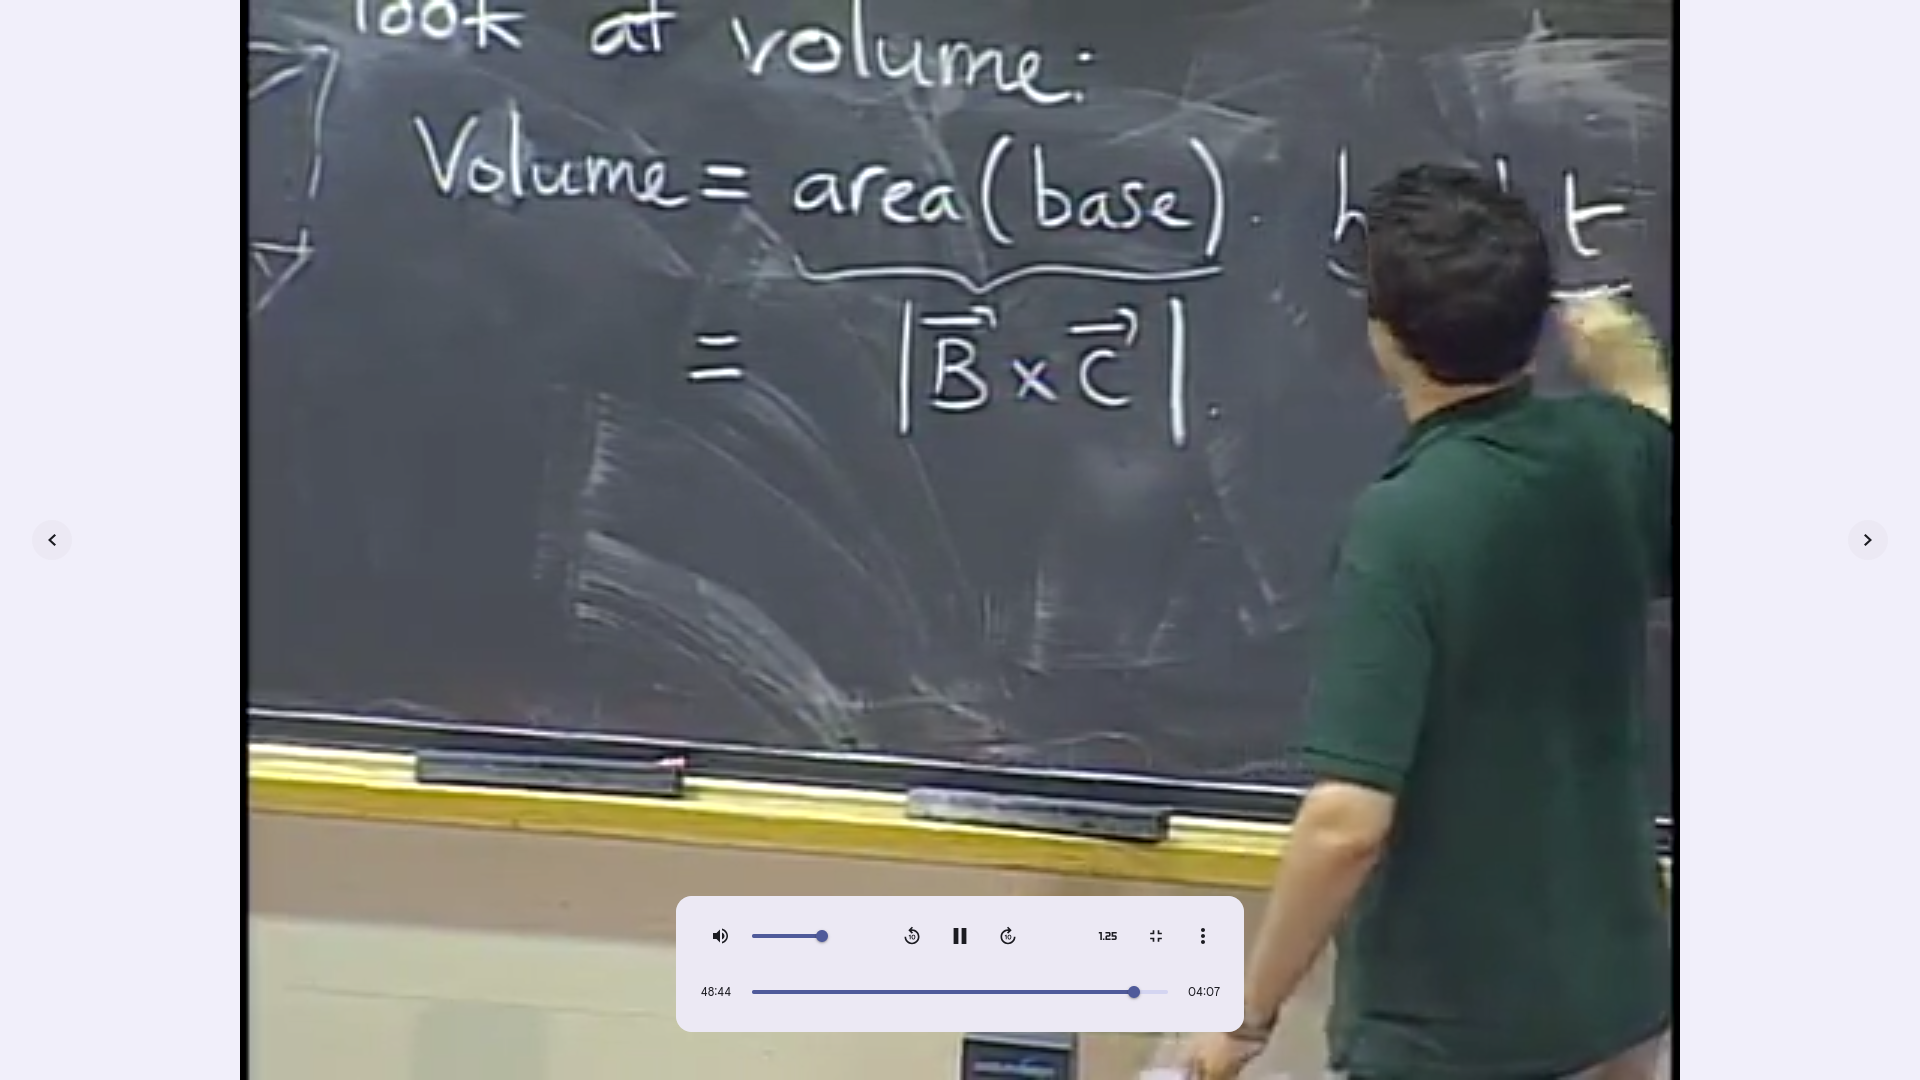 look at volume:
Volume = area(base).
= |B⃗ × C⃗|.
1.25
48:44
04:07